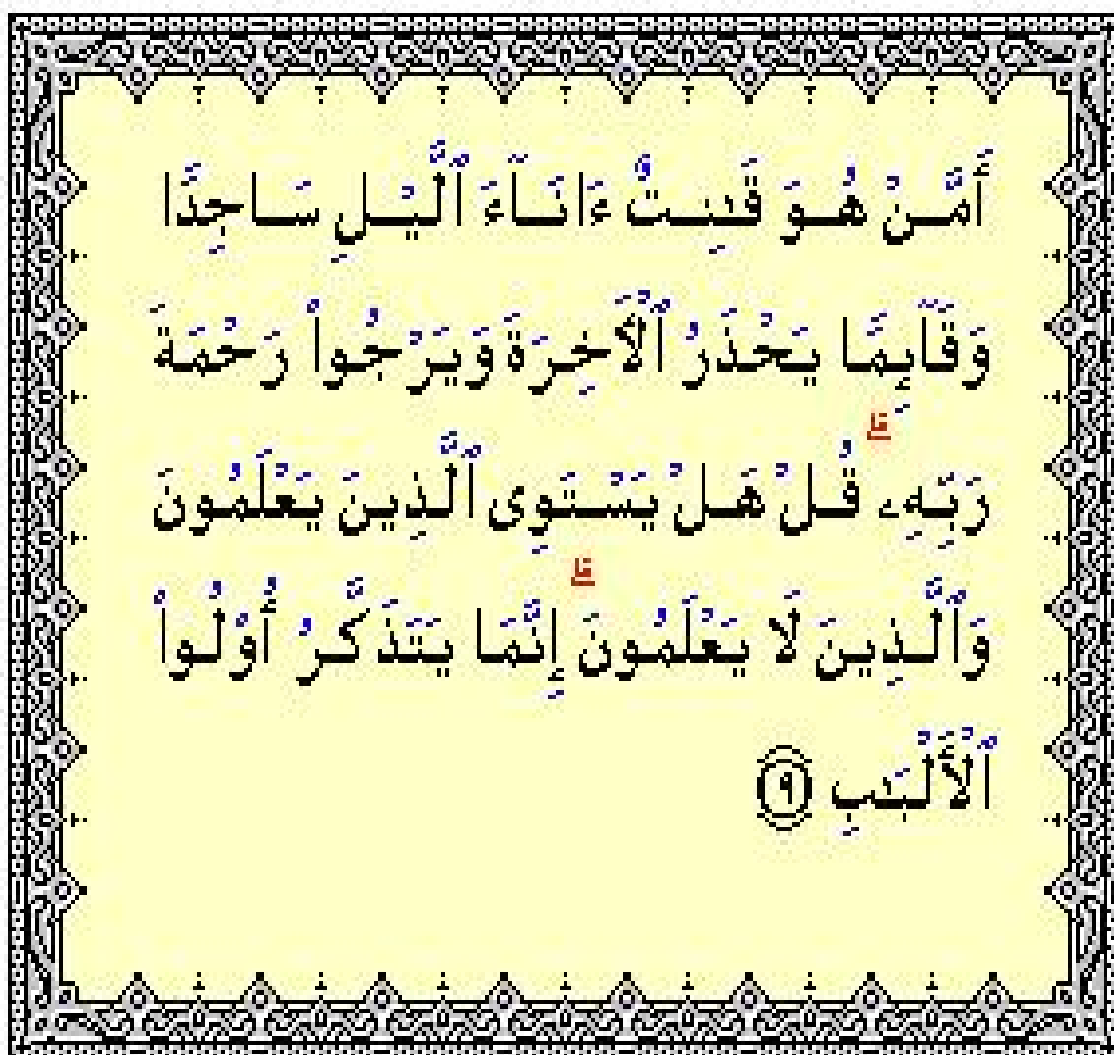 أَمَّنْ هُوَ قَـٰنِتٌ ءَانَآءَ ٱلَّيْلِ سَاجِدًا
وَقَآئِمًا يَحْذَرُ ٱلْأَخِرَةَ وَيَرْجُوا۟ رَحْمَةَ
رَبِّهِۦ ۗ قُلْ هَلْ يَسْتَوِى ٱلَّذِينَ يَعْلَمُونَ
وَٱلَّذِينَ لَا يَعْلَمُونَ ۗ إِنَّمَا يَتَذَكَّرُ أُو۟لُوا۟
ٱلْأَلْبَـٰبِ ٩